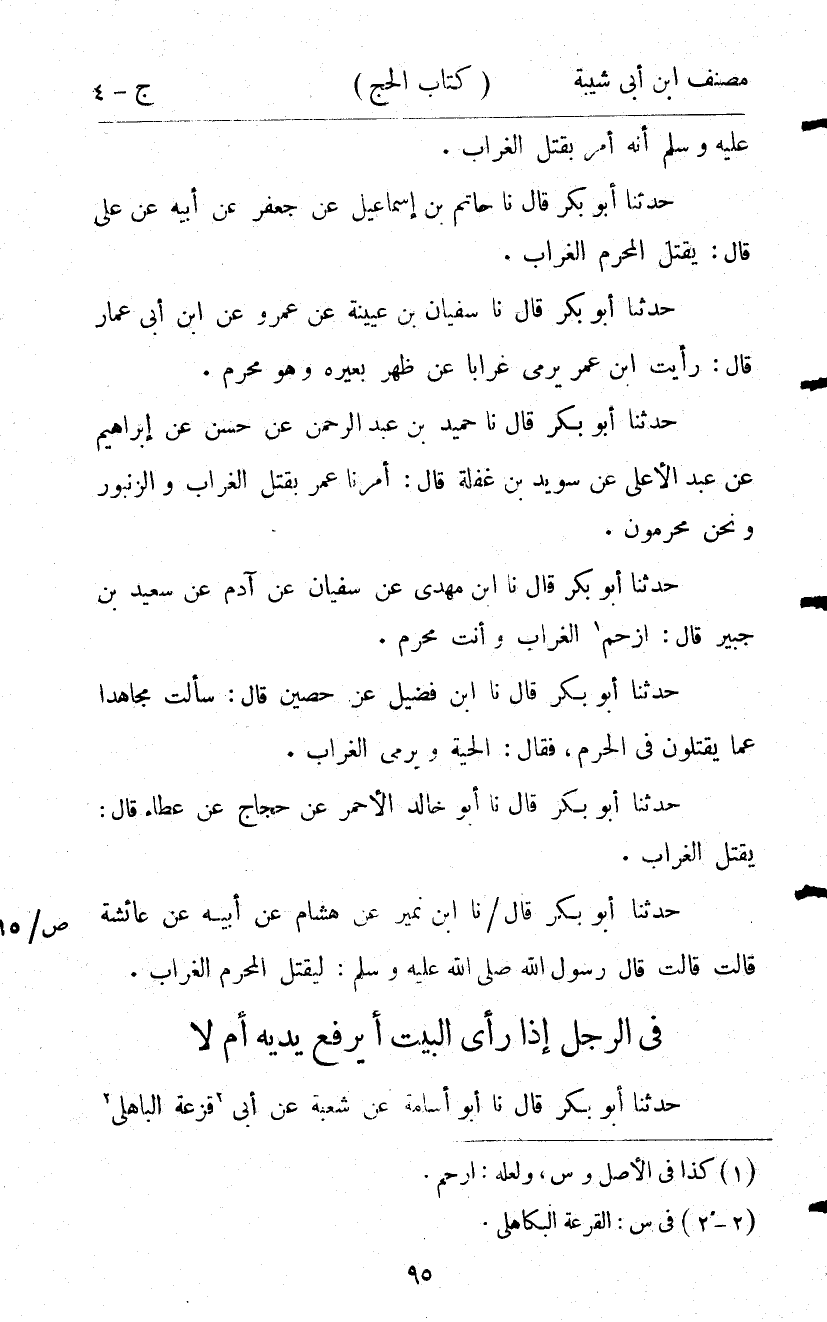 مصنف ابن أبى شيبة ( كتاب الحج ) ج - ٤
عليه و سلم أنه أمر بقتل الغراب .
حدثنا أبو بكر قال نا حاتم بن إسماعيل عن جعفر عن أبيه عن على
قال : يقتل المحرم الغراب .
حدثنا أبو بكر قال نا سفيان بن عيينة عن عمرو عن ابن أبى عمار
قال : رأيت ابن عمر يرمى غرابا عن ظهر بعيره و هو محرم .
حدثنا أبو بكر قال نا حميد بن عبد الرحمن عن حسن عن إبراهيم
عن عبد الأعلى عن سويد بن غفلة قال : أمرنا عمر بقتل الغراب و الزنبور
و نحن محرمون .
حدثنا أبو بكر قال نا ابن مهدى عن سفيان عن آدم عن سعيد بن
جبير قال : ازحم١ الغراب و أنت محرم .
حدثنا أبو بكر قال نا ابن فضيل عن حصين قال : سألت مجاهدا
عما يقتلون فى الحرم ، فقال : الحية و يرمى الغراب .
حدثنا أبو بكر قال نا أبو خالد الأحمر عن حجاج عن عطاء قال :
يقتل الغراب .
حدثنا أبو بكر قال / نا ابن نمير عن هشام عن أبيه عن عائشة
قالت قالت قال رسول الله صلى الله عليه و سلم : ليقتل المحرم الغراب .
فى الرجل إذا رأى البيت أ يرفع يديه أم لا
حدثنا أبو بكر قال نا أبو أسامة عن شعبة عن أبى ٢قزعة الباهلى٢
(١) كذا فى الأصل و س ، ولعله : ارحم .
(٢-٢) فى س : القرعة البكاهلى .
٩٥